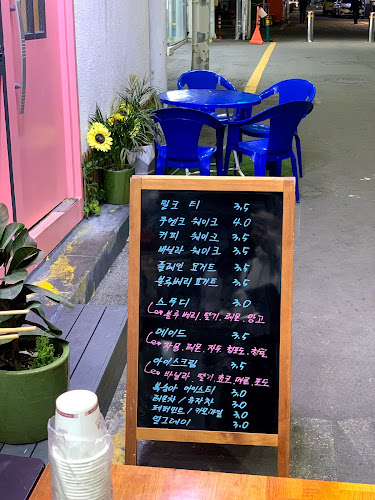 밀크 티 3.5
쿠앤크 쉐이크 4.0
커피 쉐이크 3.5
바닐라 쉐이크 3.5
플레인 요거트 3.5
블루베리 요거트 3.5
스무디 3.0
블루베리, 딸기, 레몬, 망고
에이드 3.5
자몽, 레몬, 자두, 청포도,
아이스크림 3.5
바닐라, 딸기, 초코, 메론, 포도
복숭아 아이스티 3.0
레몬차 / 유자차 3.0
페퍼민트 / 카모마일 3.0
얼그레이 3.0